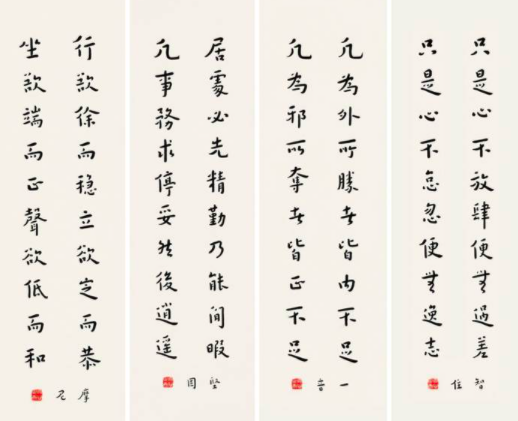 只是心不放肆便無過差
只是心不怠忽便無逸志
智住
凡為外所勝者皆內不足
凡為邪所奪者皆正不足
一音
居處必先精勤乃能間暇
凡事務求停妥然後逍遥
堅固
行欲徐而穩立欲定而恭
坐欲端而正聲欲低而和
摩尼